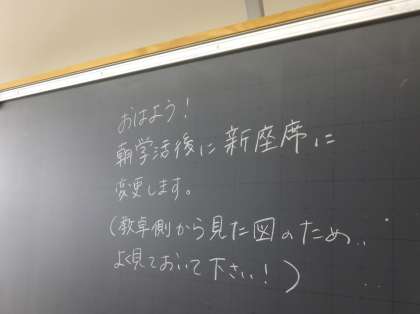 おはよう！
朝学活後に新座席に
変更します。
(教卓側から見た図のため、
よく見ておいて下さい！)